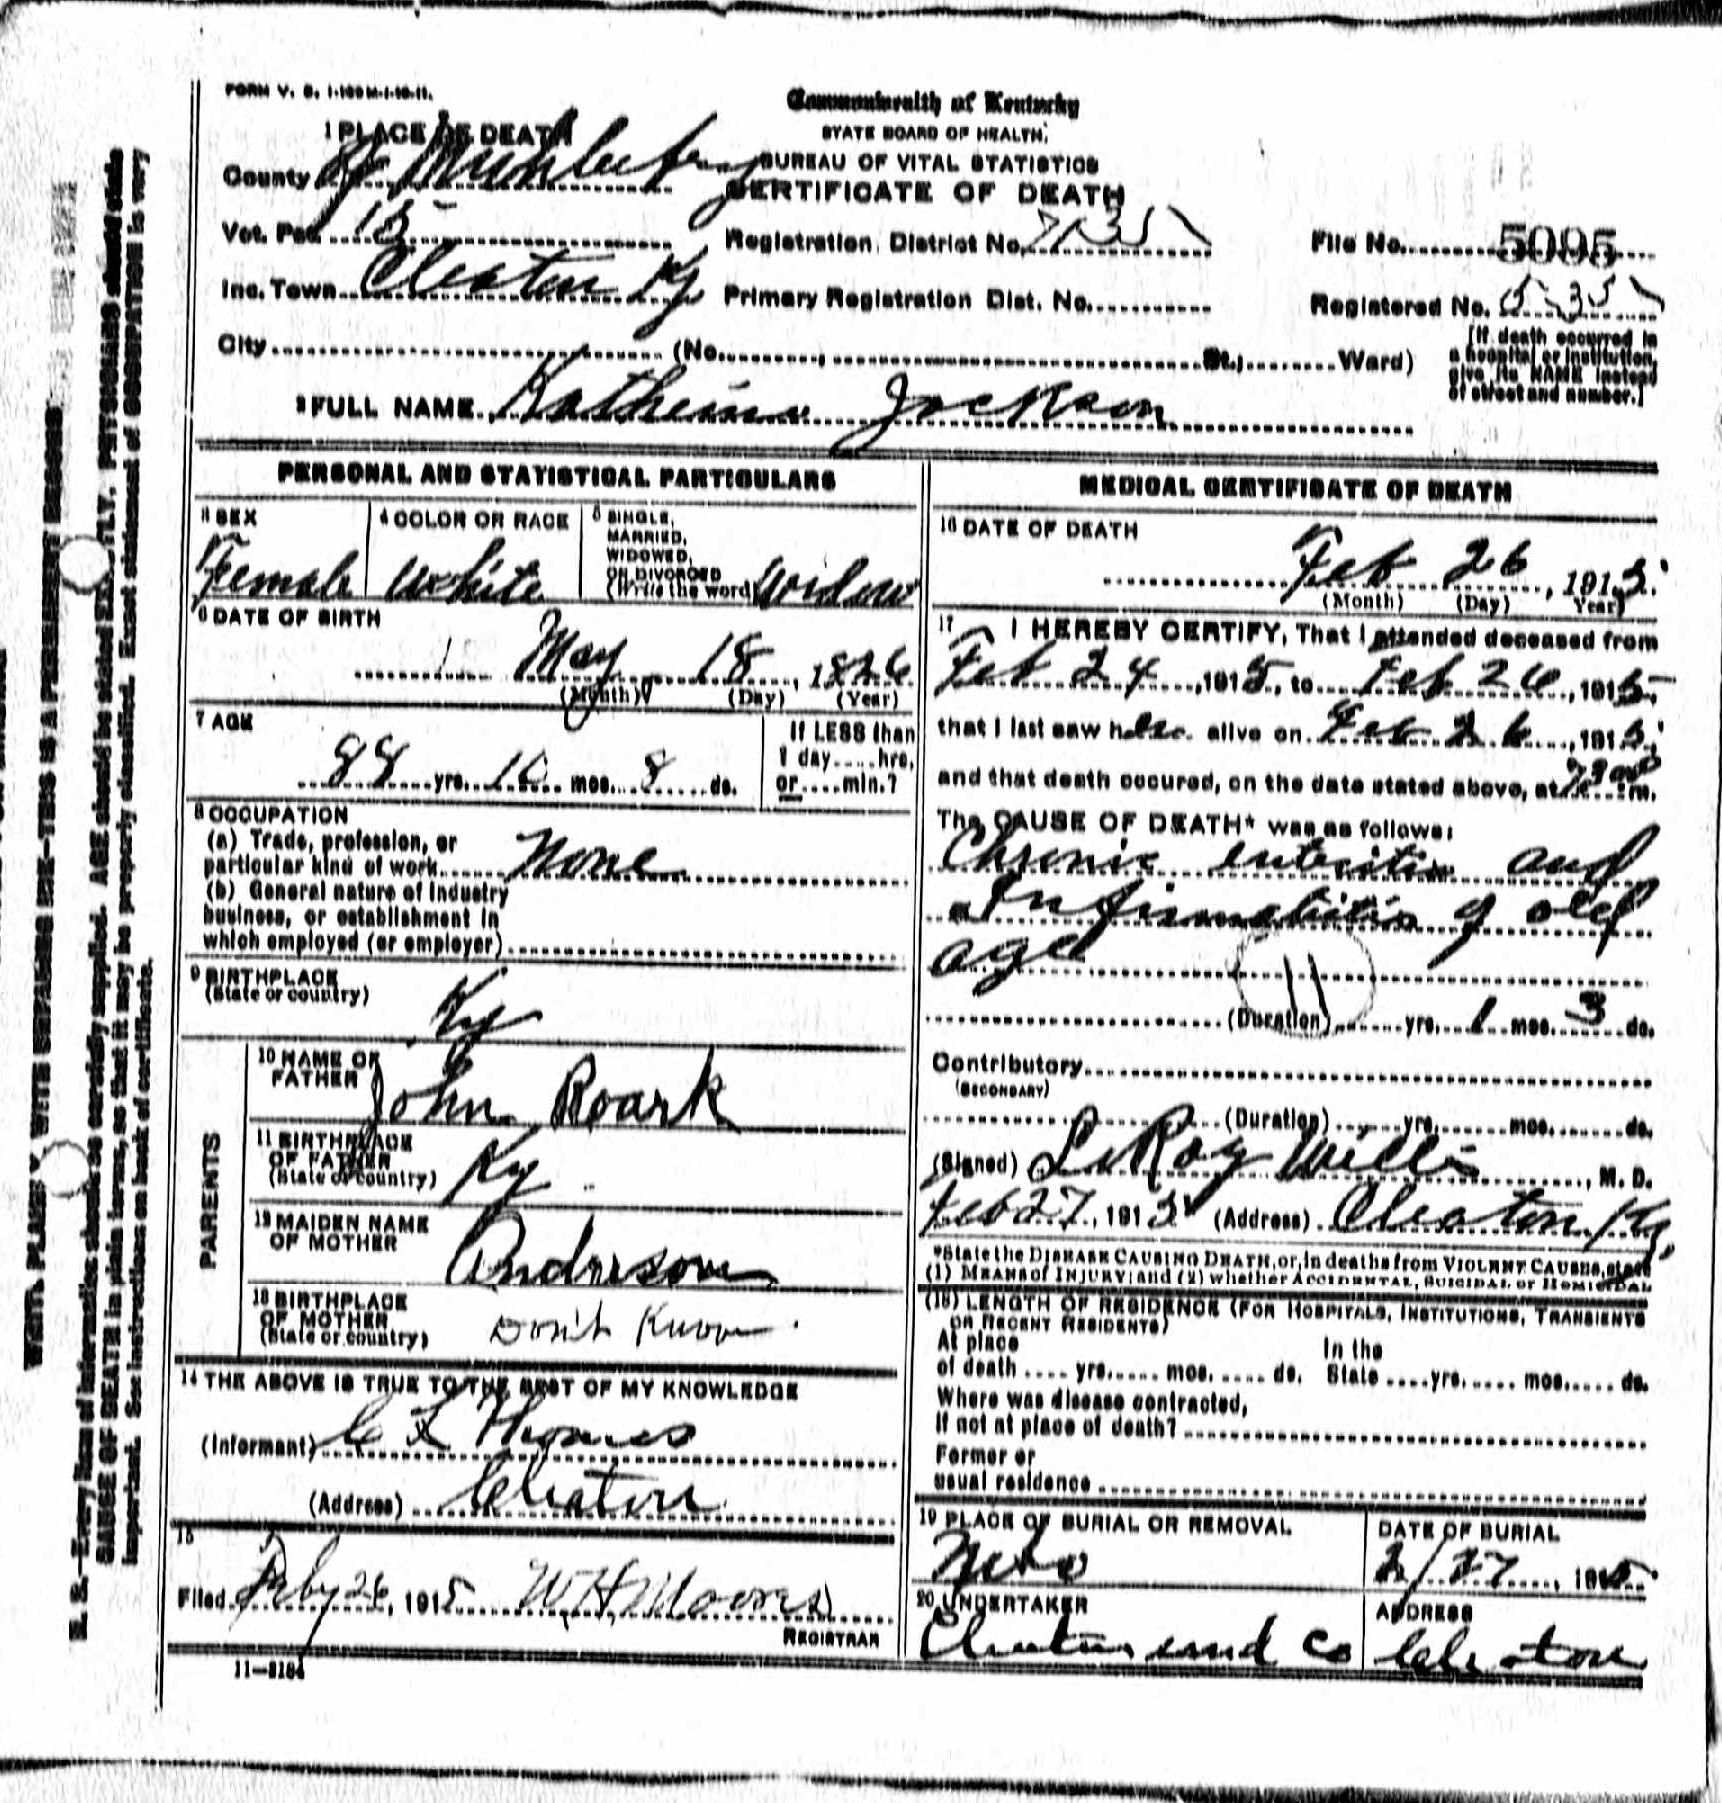 FORM V. S. 1-100M-1-10-11.
Commonwealth of Kentucky
STATE BOARD OF HEALTH.
BUREAU OF VITAL STATISTICS
CERTIFICATE OF DEATH
1 PLACE OF DEATH
County Muhlenberg
Vot. Pct. 15
Registration District No. 7135
File No. 5095
Inc. Town Cleaton Ky
Primary Registration Dist. No.
Registered No. 535
City (No. , St.; Ward)
[If death occurred in
a hospital or institution,
give its NAME instead
of street and number.]
2 FULL NAME Katherine Jackson
PERSONAL AND STATISTICAL PARTICULARS
3 SEX
Female
4 COLOR OR RACE
White
5 SINGLE,
MARRIED,
WIDOWED,
OR DIVORCED
(Write the word) Widow
6 DATE OF BIRTH
May 18, 1826
(Month) (Day) (Year)
7 AGE
88 yrs. 10 mos. 8 ds.
If LESS than
1 day.....hrs,
or.....min.?
8 OCCUPATION
(a) Trade, profession, or
particular kind of work None
(b) General nature of industry
business, or establishment in
which employed (or employer)
9 BIRTHPLACE
(State or country)
Ky
PARENTS
10 NAME OF
FATHER
John Roark
11 BIRTHPLACE
OF FATHER
(State or country)
Ky
12 MAIDEN NAME
OF MOTHER
Anderson
13 BIRTHPLACE
OF MOTHER
(State or country)
Don't Know
14 THE ABOVE IS TRUE TO THE BEST OF MY KNOWLEDGE
(Informant) C L Thomas
(Address) Cleaton
15
Filed Feby 26, 1915 W H Moores
REGISTRAR
11-3184
MEDICAL CERTIFICATE OF DEATH
16 DATE OF DEATH
Feb 26, 1915
(Month) (Day) Year)
17 I HEREBY CERTIFY, That I attended deceased from
Feb 24, 1915, to Feb 26, 1915,
that I last saw her alive on Feb 26, 1915,
and that death occured, on the date stated above, at 7:30 P m.
The CAUSE OF DEATH* was as follows:
Chronic enteritis and
Infirmities of old
age
11
(Duration) yrs. 1 mos. 3 ds.
Contributory
(SECONDARY)
(Duration) yrs. mos. ds.
(Signed) LeRoy Willis, M. D.
Feb 27, 1915 (Address) Cleaton Ky,
*State the DISEASE CAUSING DEATH, or, in deaths from VIOLENT CAUSES, state
(1) MEANS of INJURY; and (2) whether ACCIDENTAL, SUICIDAL or HOMICIDAL
(18) LENGTH OF RESIDENCE (FOR HOSPITALS, INSTITUTIONS, TRANSIENTS
OR RECENT RESIDENTS)
At place
of death yrs. mos. ds.
In the
State yrs. mos. ds.
Where was disease contracted,
if not at place of death?
Former or
usual residence
19 PLACE OF BURIAL OR REMOVAL
Nebo
DATE OF BURIAL
2/27, 1915
20 UNDERTAKER
Cleaton Co
ADDRESS
Cleaton
WRITE PLAINLY WITH UNFADING INK—THIS IS A PERMANENT RECORD
N. B.—Every item of information should be carefully supplied. AGE should be stated EXACTLY. PHYSICIANS should state
CAUSE OF DEATH in plain terms, so that it may be properly classified. Exact statement of OCCUPATION is very
important. See instructions on back of certificate.